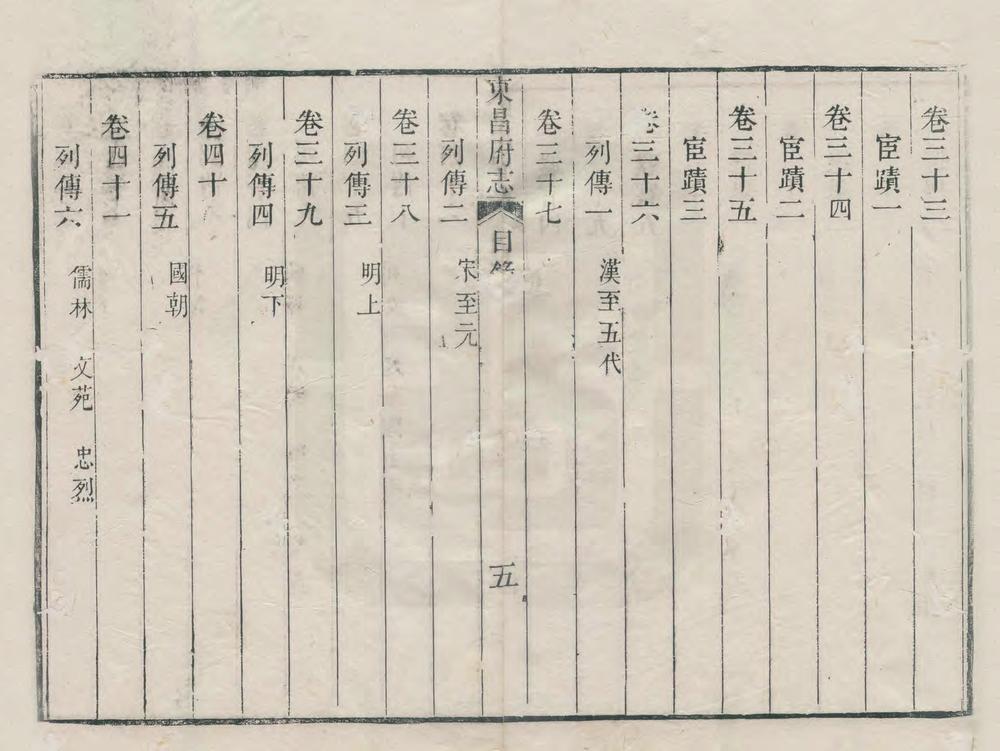 卷三十三
宦蹟一
卷三十四
宦蹟二
卷三十五
宦蹟三
卷三十六
列傳一 漢至五代
卷三十七
東昌府志 目錄 五
列傳二 宋至元
卷三十八
列傳三 明上
卷三十九
列傳四 明下
卷四十
列傳五 國朝
卷四十一
列傳六 儒林 文苑 忠烈